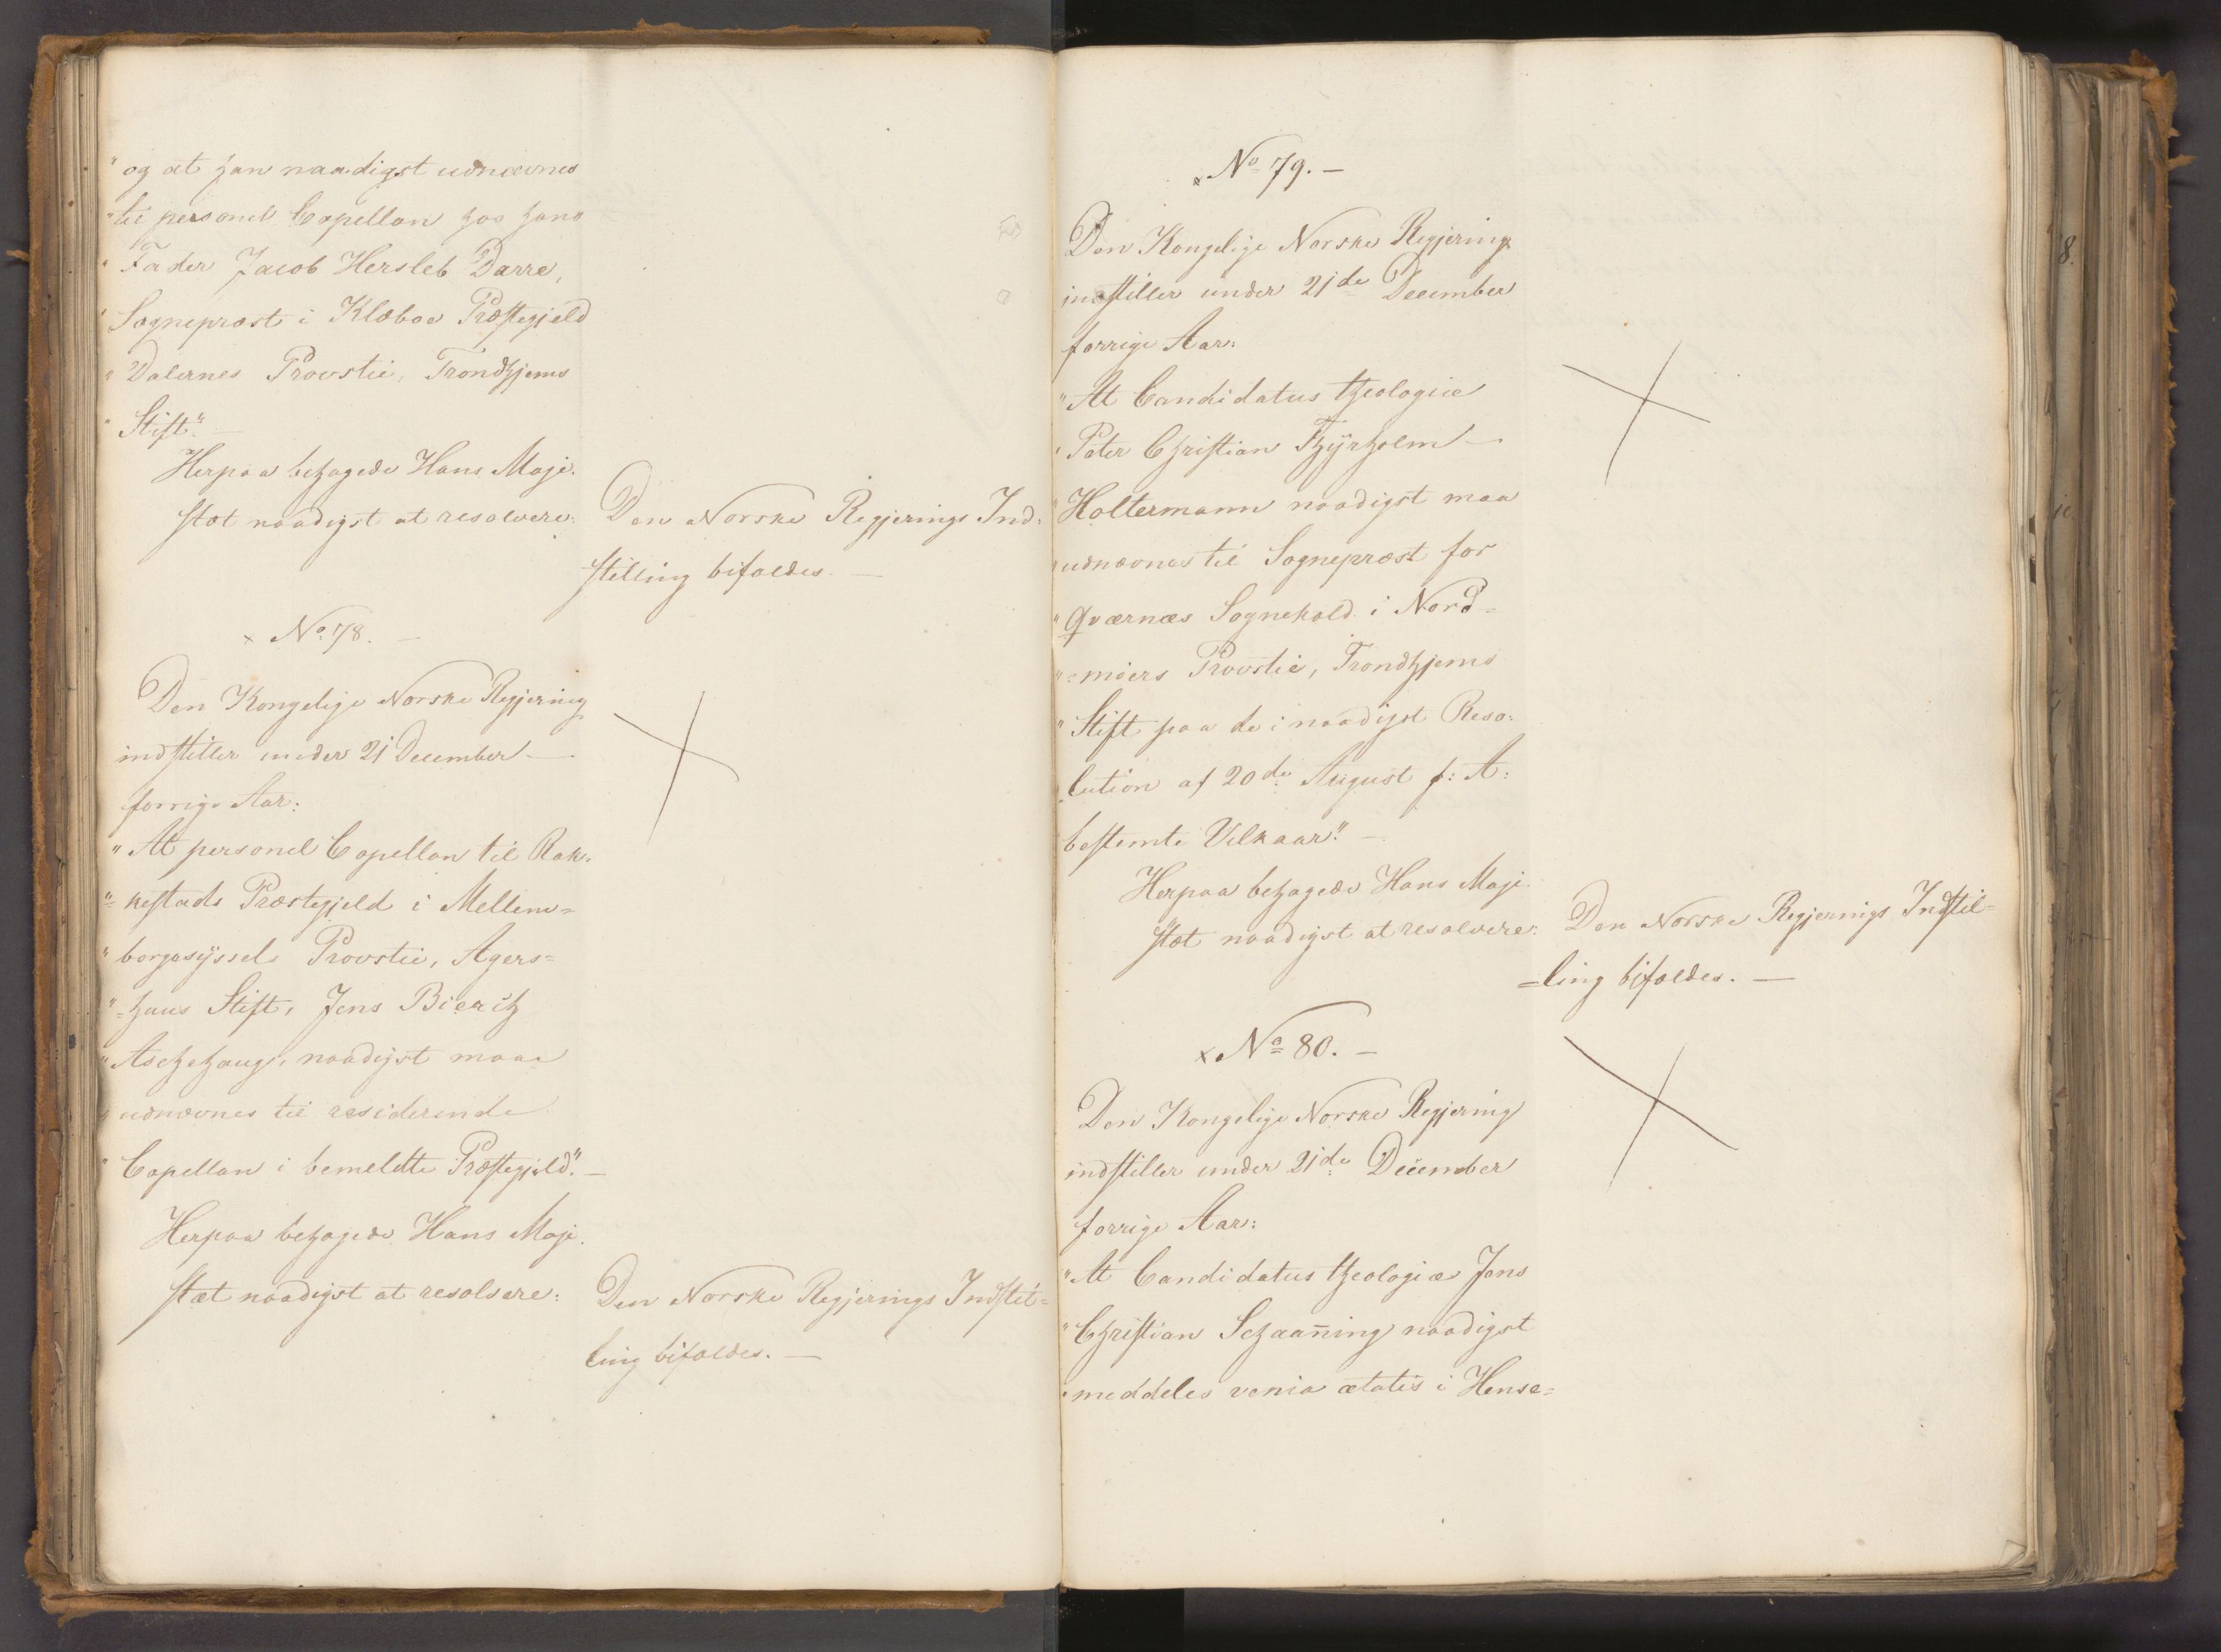 "og at han naadigst udnævnes
"til personel Capellan hos hans
"Fader Jacob Hersleb Darre,
"Sognepræst i Klæboe Præstegjeld
"Dalernes Provstie, Trondhjems
"Stift". —
Herpaa behagede Hans Maje-
stæt naadigst at resolvere:
Den Norske Regjerings Ind-
stilling bifaldes. —
x No 78. —
Den Kongelige Norske Regjering
indstiller under 21 December —
forrige Aar:
"At personel Capellan til Rak-
"=kestads Præstegjeld i Mellem=
"borgesyssels Provstie, Agers=
"=huus Stift, Jens Bierich
"Aschehoug, naadigst maae
"udnævnes til residerende
"Capellan i bemeldte Præstegjeld". —
Herpaa behagede Hans Maje-
stæt naadigst at resolvere:
Den Norske Regjerings Indstil=
ling bifaldes. —
x No 79. —
Den Kongelige Norske Regjering
indstiller under 21de December
forrige Aar:
"At Candidatus theologiæ
"Peter Christian Thyrholm —
"Holtermann naadigst maa
"udnævnes til Sognepræst for
"Qværnæs Sognekald i Nord=
"=møers Provstie, Trondhjems
"Stift paa de i naadigst Reso-
"lution af 20de August f: A:
bestemte Vilkaar". —
Herpaa behagede Hans Maje-
stæt naadigst at resolvere:
Den Norske Regjerings Indstil=
=ling bifaldes. —
x No 80. —
Den Kongelige Norske Regjering
indstiller under 21de December
forrige Aar:
"At Candidatus theologiæ Jens
"Christian Schaaning naadigst
"meddeles venia ætatis i Hense=
8.